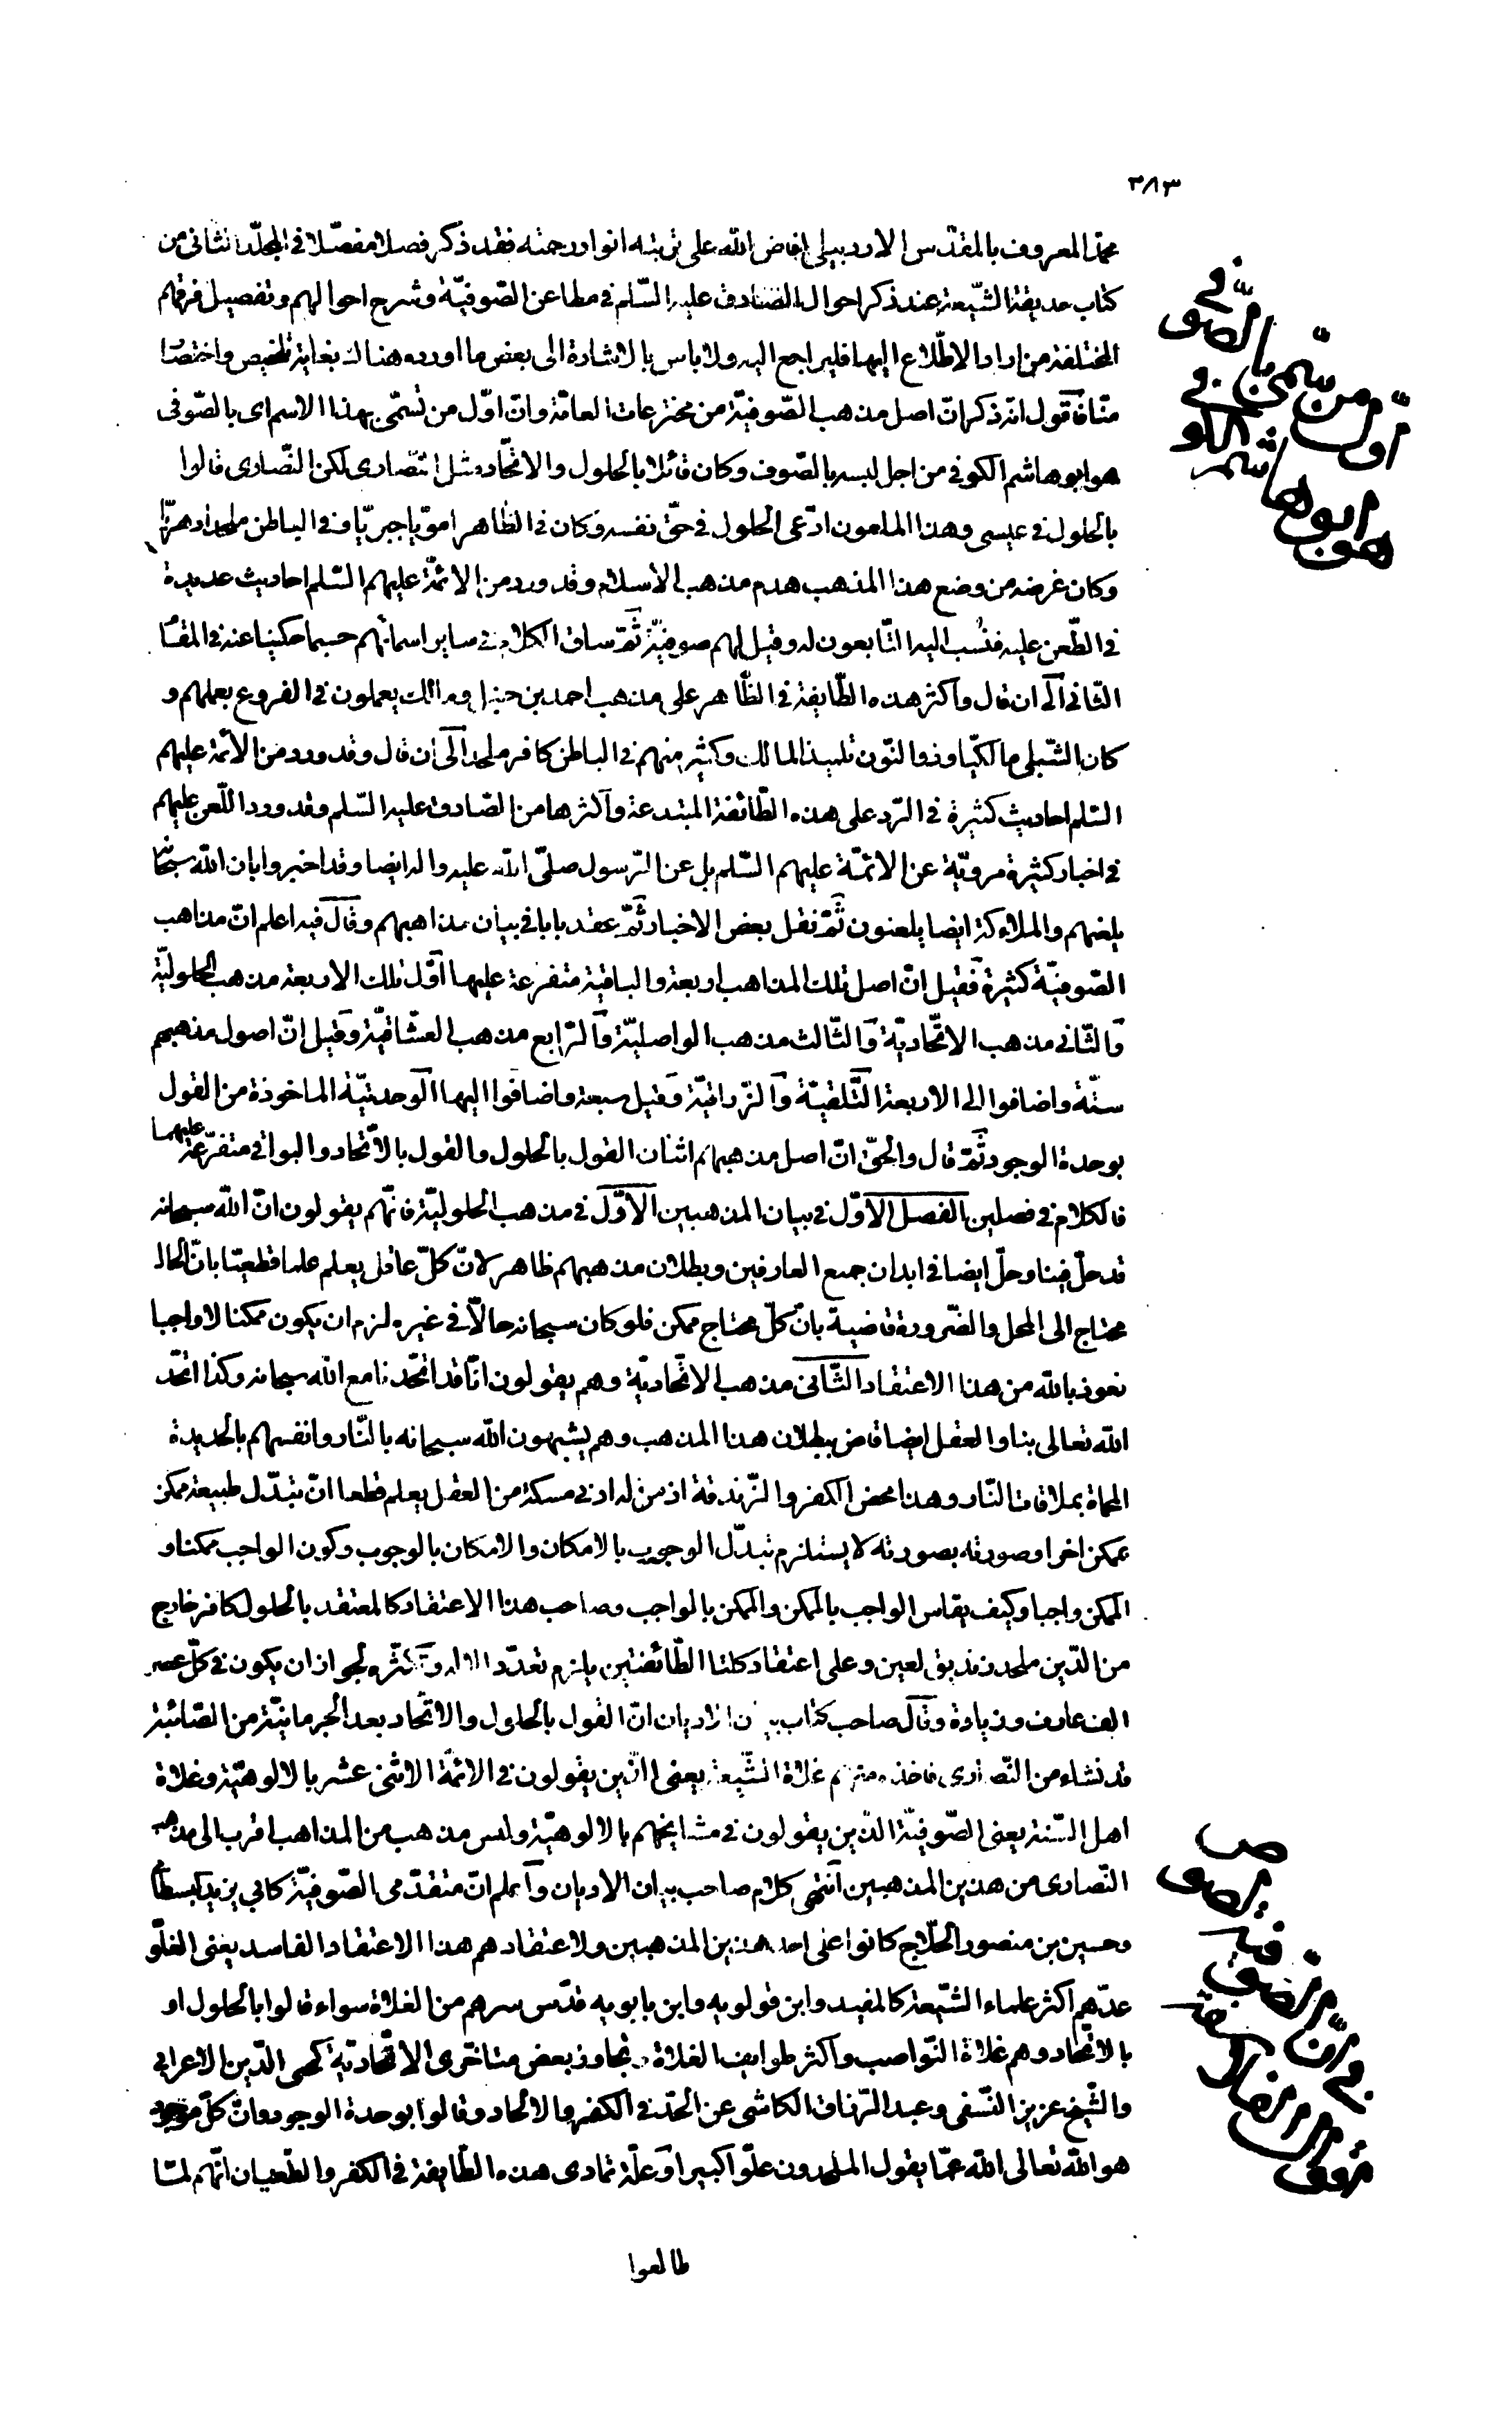 ٣٨٣
محمّد المعروف بالمقدّس الاردبيلى افاض الله على تربته انوار رحمته فقد ذكر فصلا مفصّلا فى المجلّد الثانى من
كتاب حديقة الشّيعة عند ذكر احوال الصّادق عليه السّلم فى مطاعن الصّوفيّة وشرح احوالهم وتفصيل فرقهم
المختلفة من اراد الاطّلاع اليها فليراجع اليه ولا باس بالاشارة الى بعض ما اورده هنالك بغاية تلخيص واختصا
منّا فنقول انّه ذكر انّ اصل مذهب الصّوفيّة من مخترعات العامّة وانّ اوّل من تسمّى بهذا الاسم اى بالصّوفى
هو ابو هاشم الكوفى من اجل لبسه بالصّوف وكان قائلا بالحلول والاتّحاد مثل النّصارى لكن النّصارى قالوا
بالحلول فى عيسى وهذا الملعون ادّعى الحلول فى حقّ نفسه وكان فى الظّاهر امويّا جبريّا وفى الباطن ملحدا دهريّا
وكان غرضه من وضع هذا المذهب هدم مذهب الاسلام وقد ورد من الائمّة عليهم السّلم احاديث عديدة
فى الطّعن عليه فنُسب اليه التّابعون له وقيل لهم صوفيّة ثمّ ساق الكلام فى ساير اسمائهم حسبما حكيناعنه فى المقا
الثّانى الى ان قال واكثر هذه الطّايفة فى الظّاهر على مذهب احمد بن حنبل ومالك يعملون فى الفروع بعملهم و
كان الشّبلى مالكيّا وذو النّون تلميذ المالك وكثير منهم فى الباطن كافر ملحد الى ان قال وقد ورد من الائمّة عليهم
السّلم احاديث كثيرة فى الرّد على هذه الطّائفة المبتدعة واكثرها من الصّادق عليه السّلم وقد ورد اللّعن عليهم
فى اخبار كثيرة مرويّة عن الائمّة عليهم السّلم بل عن الرّسول صلّى الله عليه واله ايضا وقد اخبروا بان الله سبحانه
يلعنهم والملاءكة ايضا يلعنون ثمّ نقل بعض الاخبار ثمّ عقد بابا فى بيان مذاهبهم وقال فيه اعلم انّ مذاهب
الصّوفيّة كثيرة فقيل انّ اصل تلك المذاهب اربعة والباقية متفرعة عليها اوّل تلك الاربعة مذهب الحلوليّة
والثّانى مذهب الاتّحاديّة والثّالث مذهب الواصليّة والرّابع مذهب العشّاقيّة وقيل انّ اصول مذهبهم
ستّة واضافوا الى الاربعة التّلقيّة والزّراقيّة وقيل سبعة واضافوا اليها الوحدتيّة الماخوذة من القول
بوحدة الوجود ثمّ قال والحقّ انّ اصل مذهبهم اثنان القول بالحلول والقول بالاتّحاد والبواقى متفرّعة عليهما
فالكلام فى فصلين الفصل الاوّل فى بيان المذهبين الاوّل فى مذهب الحلوليّة فانّهم يقولون انّ الله سبحانه
قد حلّ فينا وحلّ ايضا فى ابدان جميع العارفين وبطلان مذهبهم ظاهر لانّ كلّ عاقل يعلم علما قطعيّا بانّ الحال
محتاج الى المحل والضّرورة قاضية بانّ كلّ محتاج ممكن فلو كان سبحانه حالّا فى غيره لزم ان يكون ممكنا لا واجبا
نعوذ بالله من هذا الاعتقاد الثّانى مذهب الاتّحاديّة وهم يقولون انّا قد اتّحدنا مع الله سبحانه وكذا اتّحد
الله تعالى بنا والعقل ايضا قاض ببطلان هذا المذهب وهم يشبهون الله سبحانه بالنّار وانفسهم بالحديدة
المحماة بملاقات النّار وهذا محض الكفر والزّندقة اذ من له ادنى مسكة من العقل يعلم قطعا انّ تبدّل طبيعة ممكن
بممكن اخر او صورته بصورته لا يستلزم تبدّل الوجوب بالامكان والامكان بالوجوب وكون الواجب ممكنا و
الممكن واجبا وكيف يقاس الواجب بالممكن والممكن بالواجب وصاحب هذا الاعتقاد كالمعتقد بالحلول كافر خارج
من الدّين ملحد زنديق لعين وعلى اعتقاد كلتا الطّائفتين يلزم تعدّد الاله وتكثّره لجواز ان يكون فى كلّ عصر
الف عارف وزيادة وقال صاحب كتاب بيان الاديان انّ القول بالحلول والاتّحاد بعد الجرمانيّة من الصّائبة
قد نشاء من النّصارى فاخذه منهم غلاة الشّيعة يعنى الّذين يقولون فى الائمّة الاثنى عشر بالالوهيّة وغلاة
اهل السّنة يعنى الصّوفيّة الّذين يقولون فى مشايخهم بالالوهيّة وليس مذهب من المذاهب اقرب الى مذهب
النّصارى من هذين المذهبين انتهى كلام صاحب بيان الاديان واعلم انّ متقدّمى الصّوفيّة كابى يزيد البسطامى
وحسين بن منصور الحلّاج كانوا على احد هذين المذهبين ولاعتقادهم هذا الاعتقاد الفاسد يعنى الغلّو
عدّهم اكثر علماء الشّيعة كالمفيد وابن قولويه وابن بابويه قدّس سرهم من الغلاة سواء قالوا بالحلول او
بالاتّحاد وهم غلاة النّواصب واكثر طوايف الغلاة وتجاوز بعض متاخّرى الاتّحاديّة كمحى الدّين الاعرابى
والشّيخ عزيز النّسفى وعبد الرّزاق الكاشى عن الحدّ فى الكفر والالحاد وقالوا بوحدة الوجود وانّ كلّ موجود
هو الله تعالى الله عمّا يقول الملحدون علّوا كبيرا وعلّة تمادى هذه الطّايفة فى الكفر والطّغيان انّهم لمّا
طالعوا
اوّل من تسمّى بالصّوفى
هو ابو هاشم الكوفى